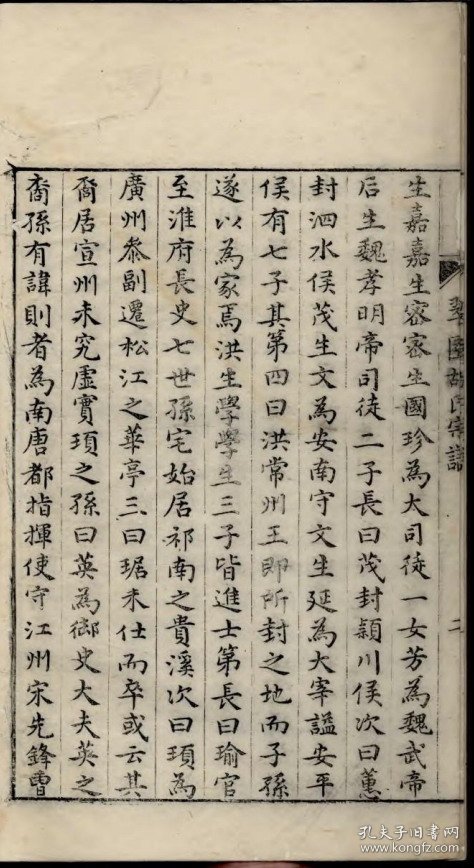 生嘉嘉生密密生國珍為大司徒一女芳為魏武帝
后生魏孝明帝司徒二子長曰茂封潁川侯次曰蕙
封泗水侯茂生文為安南守文生延為大宰謚安平
侯有七子其第四曰洪常州王即所封之地而子孫
遂以為家焉洪生學學生三子皆進士第長曰瑜官
至淮府長史七世孫宅始居祁南之貴溪次曰頊為
廣州叅副遷松江之華亭三曰琚未仕而卒或云其
裔居宣州未究虛實頊之孫曰英為御史大夫英之
裔孫有諱則者為南唐都指揮使守江州宋先鋒曹
翠園胡氏宗譜
二
孔夫子旧书网
www.kongfz.com